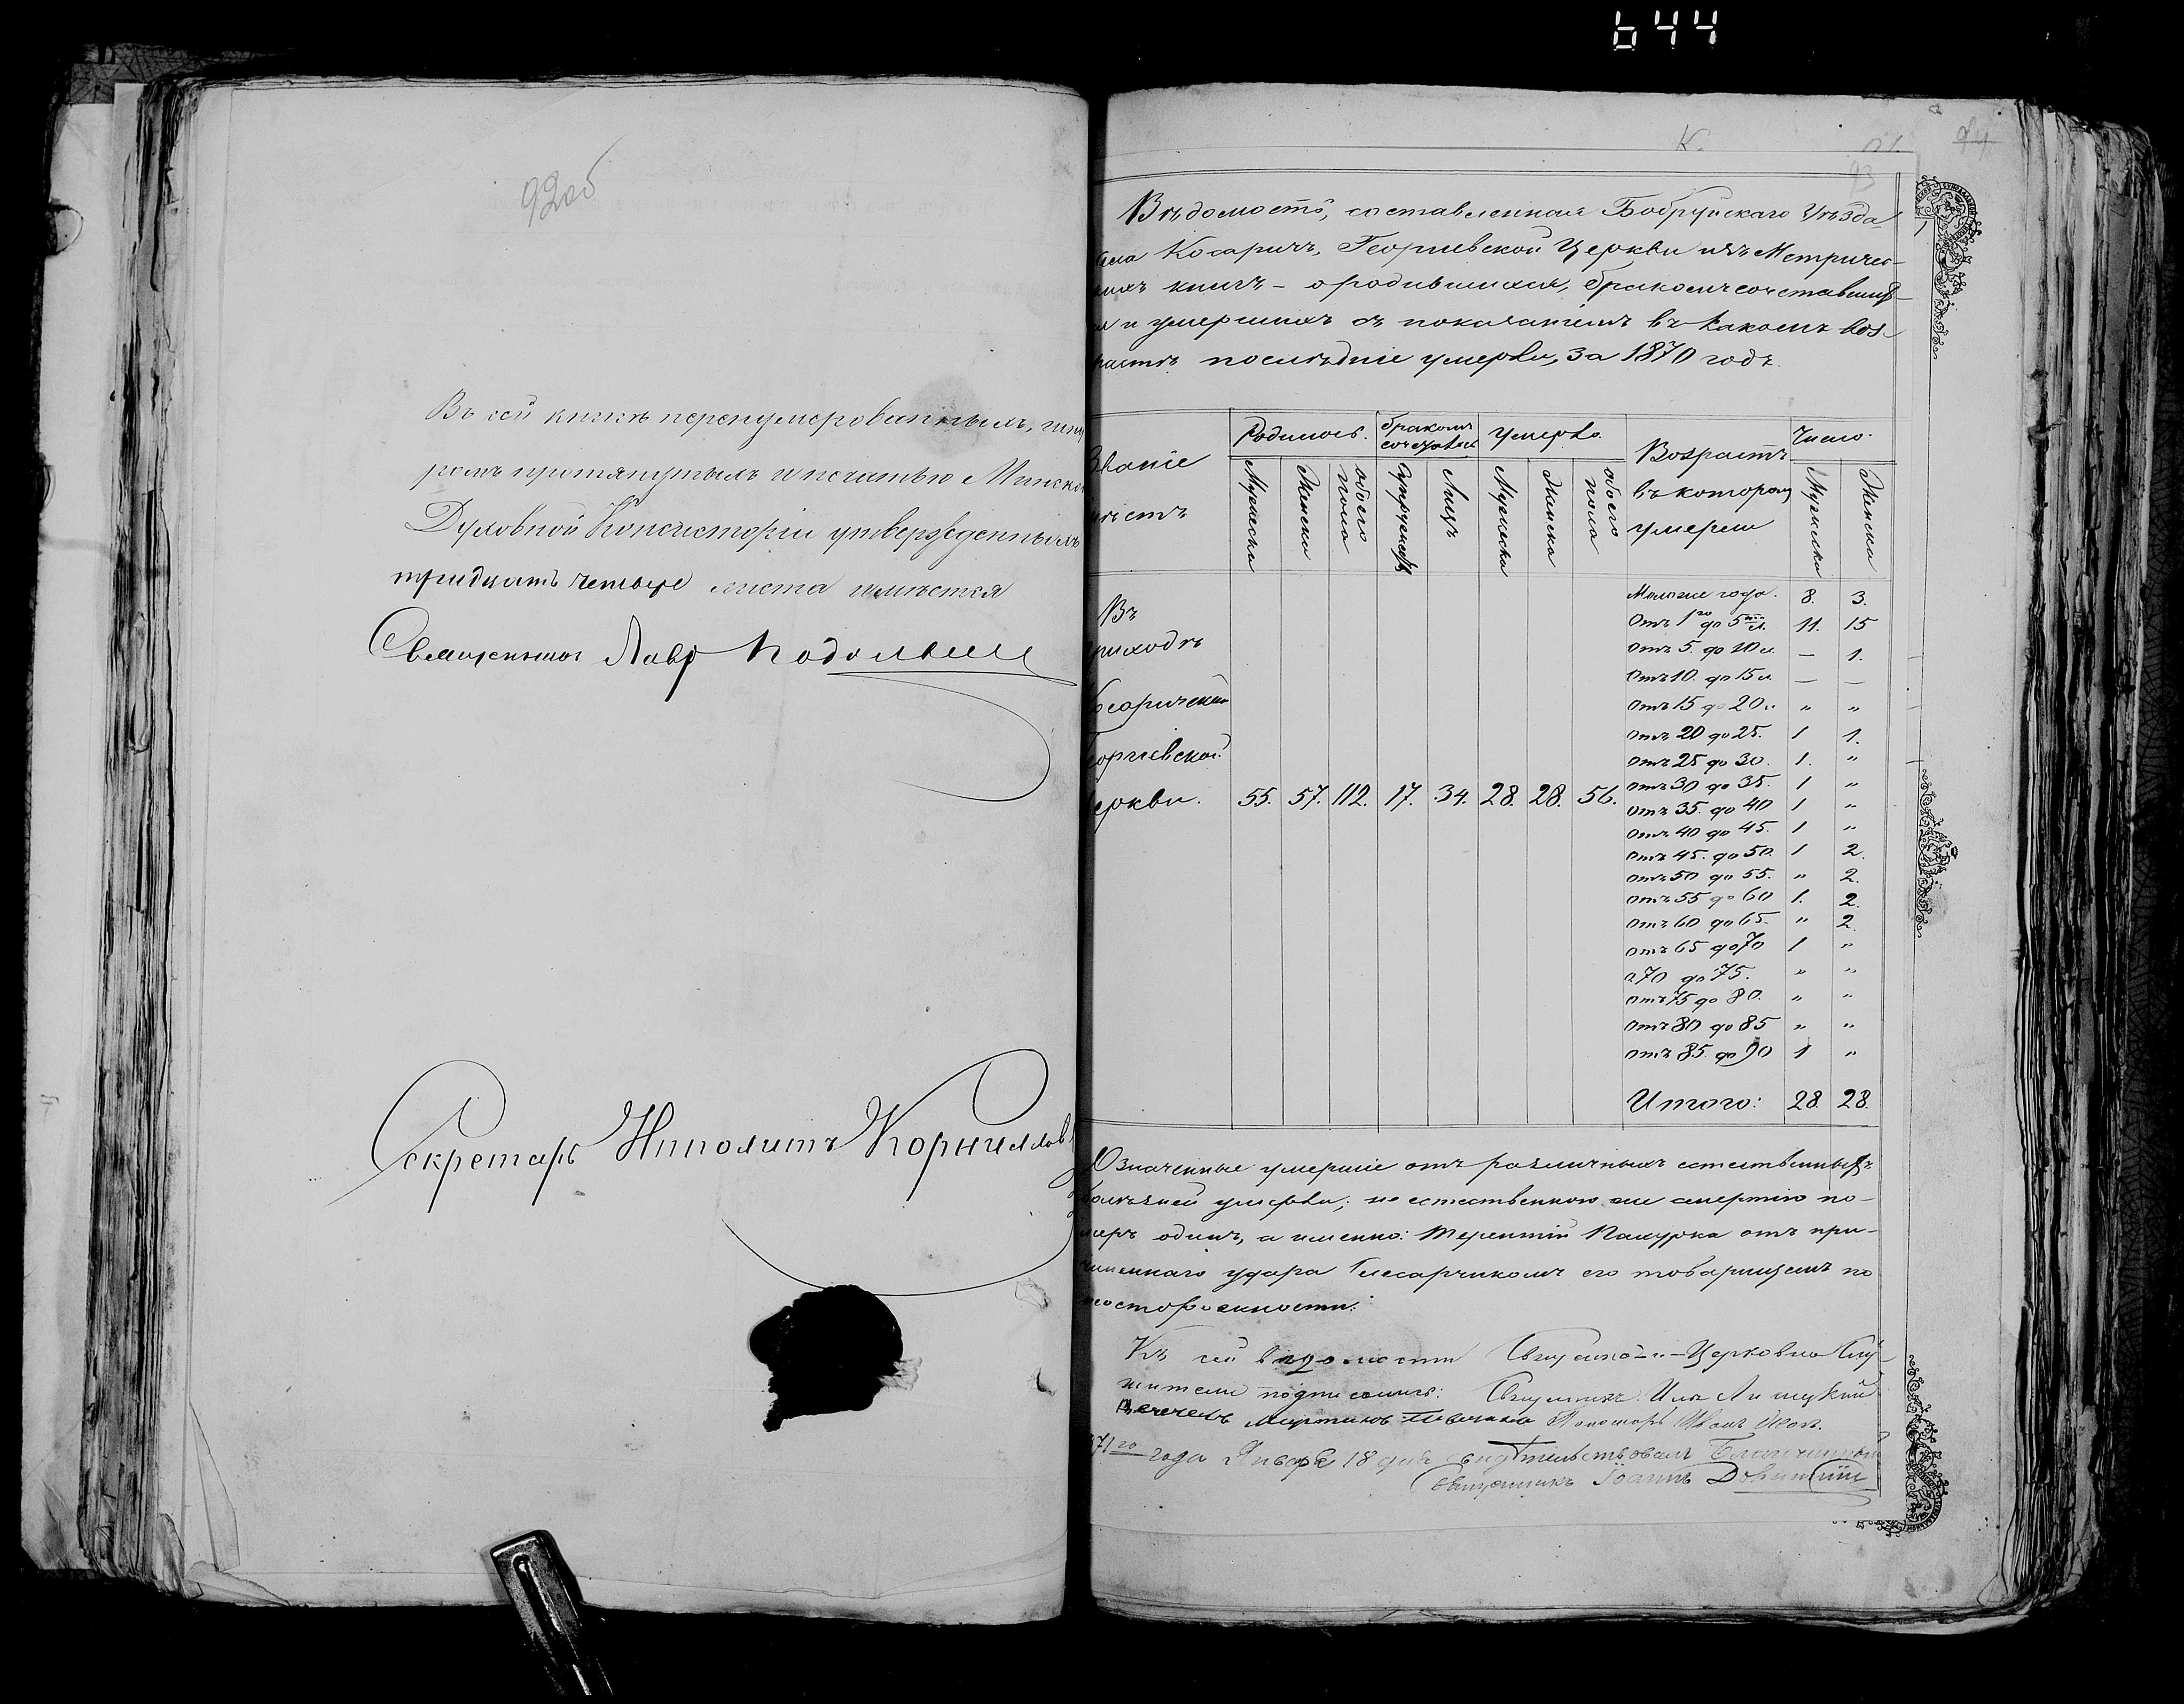 644
92об
Въ сей книгѣ перенумерованныхъ, шну
ромъ протянутыхъ и печатью Минской
Духовной Консисторіи утвержденныхъ
тридцать четыре листа имѣется
Священникъ Лавр
Секретарь Ипполитъ Корниллов
К.
94
93
Вѣдомость, составленная Бобруйскаго Уѣзда
села Косаричъ, Георгіевской Церкви изъ Метричес-
кихъ книгъ - о родившихся, бракомъ сочетавших-
ся и умершихъ съ показаніемъ въ какомъ воз-
растѣ послѣдніе умерли, за 1870 годъ.
Званіе мѣстъ
Родилось. бракомъ сочетались Умерло. Возрастъ въ котором умерли Число.
Мужеска Женска обоего пола Супружествъ Лицъ Мужеска Женска обоего пола Мужеска Женска
Въ
приходѣ
Косаричской
Георгіевской
Церкви. 55. 57. 112. 17. 34. 28. 28. 56.
Моложе года. 8. 3.
Отъ 1го до 5ти л. 11. 15
Отъ 5. до 10 л. — 1.
Отъ 10. до 15 л — —
Отъ 15 до 20 л. " "
Отъ 20 до 25. 1 1.
Отъ 25 до 30. 1. "
Отъ 30 до 35. 1 "
Отъ 35. до 40 1 "
Отъ 40 до 45. 1 "
Отъ 45. до 50. 1 2.
Отъ 50 до 55. " 2.
Отъ 55 до 60 1. 2.
Отъ 60 до 65. " 2.
Отъ 65 до 70 1 "
70 до 75. " "
Отъ 75 до 80. " "
Отъ 80 до 85 " "
Отъ 85. до 90 1 "
Итого: 28. 28.
Означенные умершіе отъ различныхъ естественныхъ
болѣзней умерли; не естественною же смертію по-
меръ одинъ, а именно: Терентій отъ при-
чиненнаго удара его товарищемъ по
неосторожности.
Къ сей вѣдомости Священно-и-Церковно Слу-
жители подписались: Священникъ Илья
Мартинъ Пономарь Иванъ
871го года Января 18 дня свидѣтельствовалъ Благочинный
Священникъ Іоаннъ